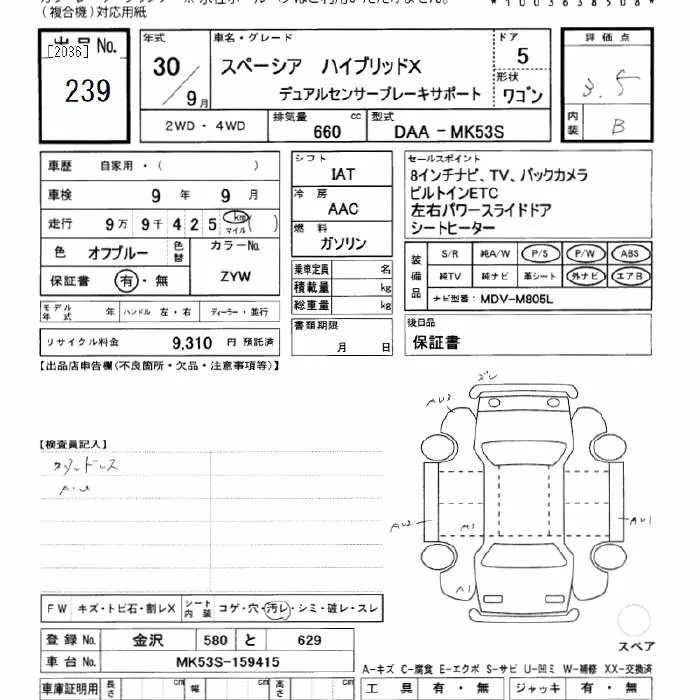 (複合機)対応用紙
*1003638508*
出品No.
[2036]
239
年式
30
9月
車名・グレード
スペーシア ハイブリッドX
デュアルセンサーブレーキサポート
ドア
5
形状
ワゴン
2WD・4WD
排気量
660
cc
型式
DAA-MK53S
評価点
3.5
内装
B
車歴 自家用・( )
車検 9年 9月
走行 9万 9千 4 2 5 km マイル ( )
色 オフブルー
色替
カラーNo.
ZYW
保証書 有・無
モデル年式 年
ハンドル 左・右
ディーラー・並行
リサイクル料金 9,310 円 預託済
シフト
IAT
冷房
AAC
燃料
ガソリン
乗車定員 名
積載量 kg
総重量 kg
書類期限
月 日
セールスポイント
8インチナビ、TV、バックカメラ
ビルトインETC
左右パワースライドドア
シートヒーター
装備品
S/R 純A/W P/S P/W ABS
純TV 純ナビ 革シート 外ナビ エアB
ナビ型番: MDV-M805L
後日品
保証書
[出品店申告欄(不良箇所・欠品・注意事項等)]
【検査員記入】
A・U
ズレ
AU2
AU2
A1
AU1
A1
FW キズ・トビ石・割レX
シート内装 コゲ・穴・汚レ・シミ・破レ・スレ
登録No. 金沢 580 と 629
車台No. MK53S-159415
車庫証明用 長さ cm 幅 cm 高さ cm
スペア
A-キズ C-腐食 E-エクボ S-サビ U-凹ミ W-補修 XX-交換済
工具 有・無 ジャッキ 有・無